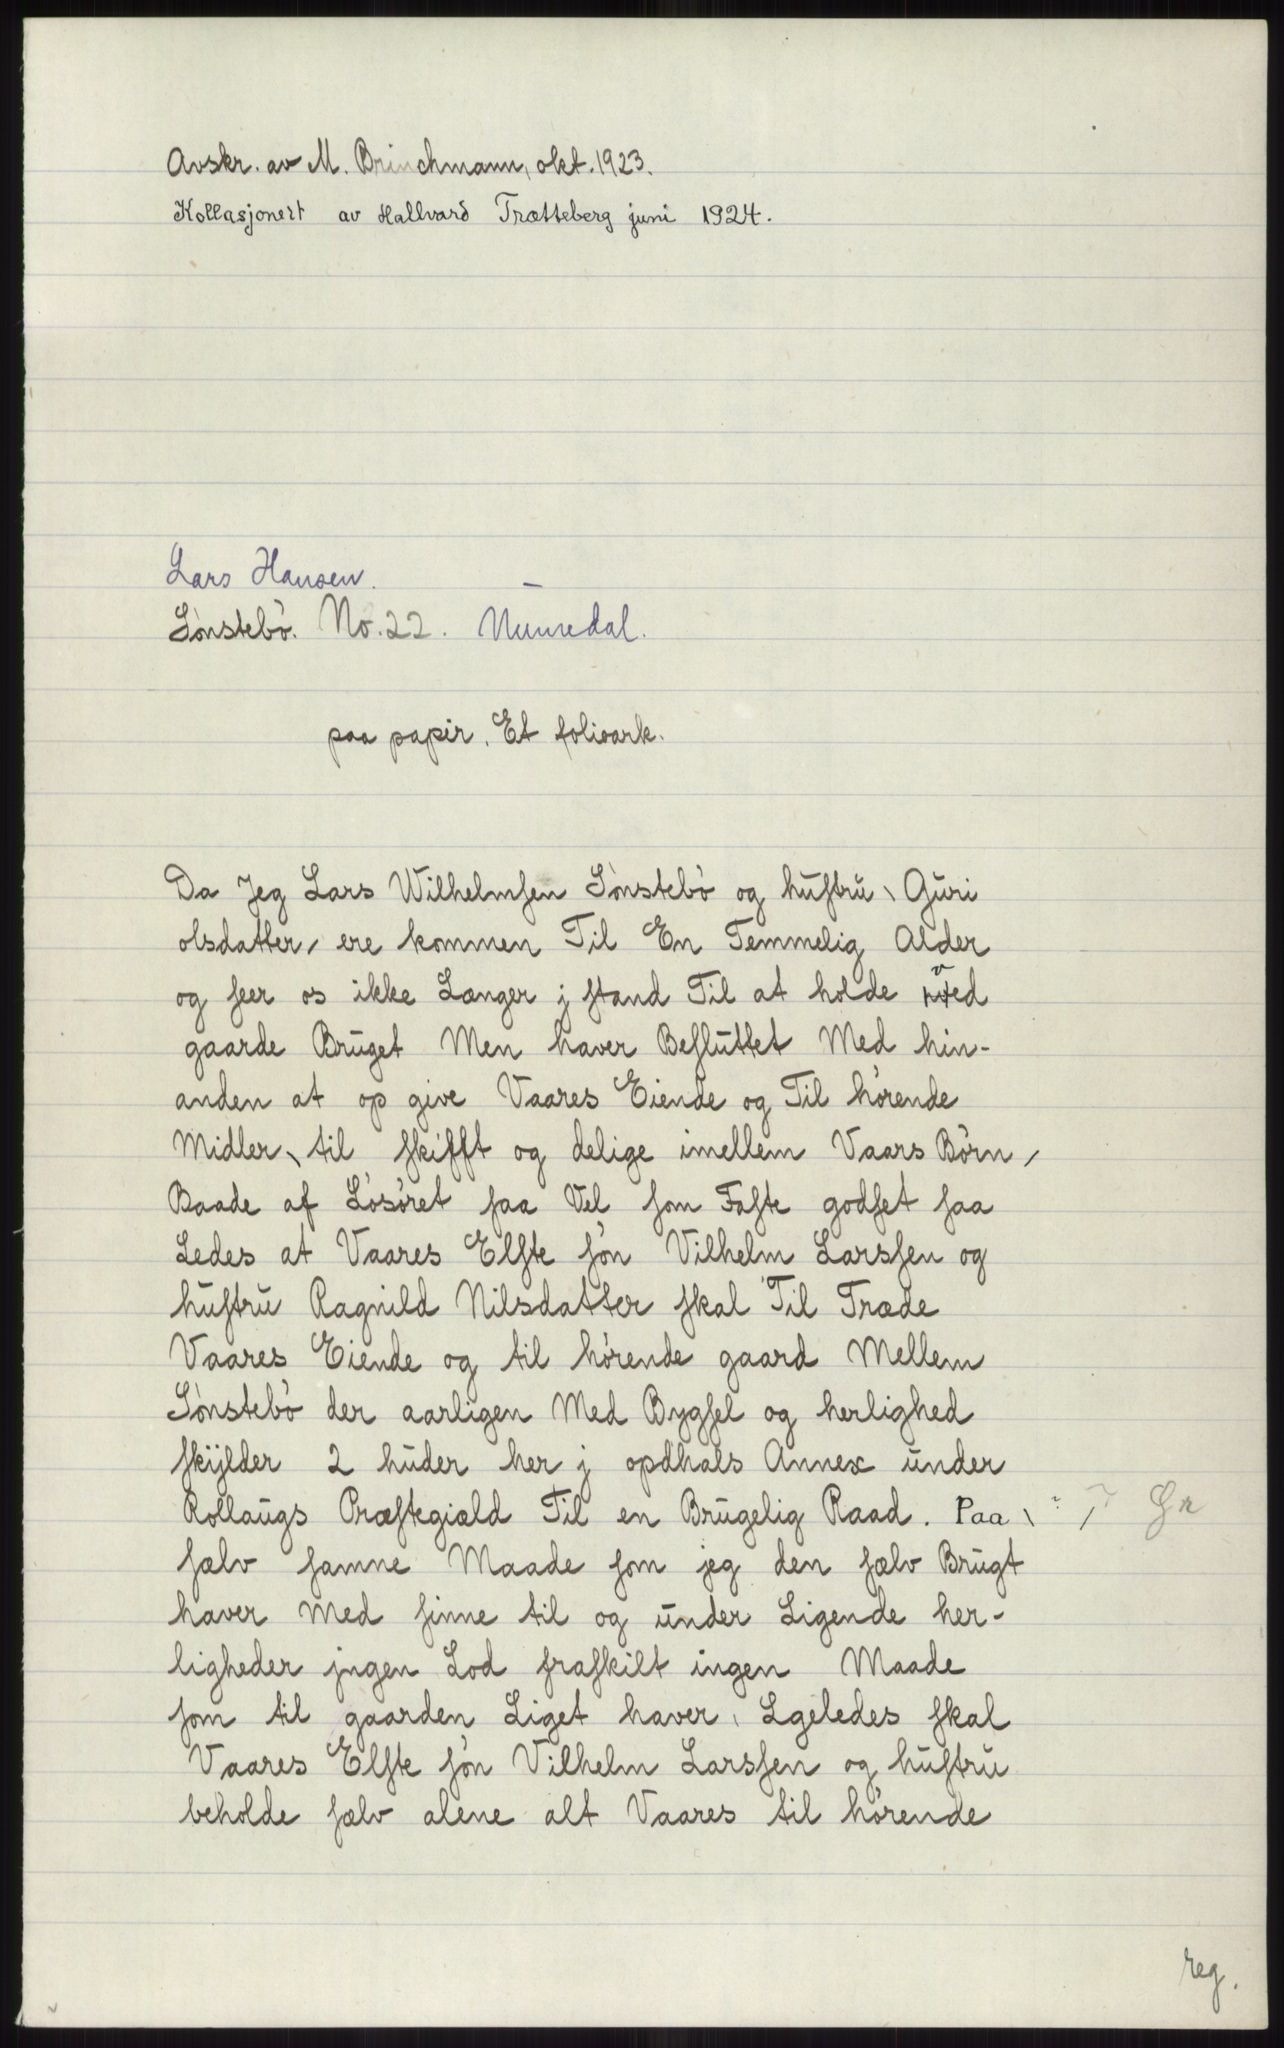 Avskr. av M. Brinchmann, okt. 1923.
Kollasjonert av Hallvard Trætteberg juni 1924.
Lars Hansen.
Sònstebò. No. 22. Numedal.
paa papir. Et folioark.
Da Jeg Lars Wilhelmſen Sònstebò og huſtru \ Guri
olsdatter / ere kommen Til En Temmelig Alder
og ſeer os ikke Længer j ſtand Til at holde ved
gaarde Bruget Men haver Beſluttet Med hin-
anden at op give Vaares Eiende og Til hòrende
Midler \ til ſkifft og delige imellem Vaars Bòrn /
Baade af Lòsòret ſaa Vel ſom Faſte godſet ſaa
Ledes at Vaares Elſte ſòn Vilhelm Larsſen og
huſtru Ragnild Nilsdatter ſkal Til Træde
Vaares Eiende og til hòrende gaard Mellem
Sònstebò der aarligen Med Bygſel og herlighed
ſkÿlder 2 huder her j opdhals Annex under
Rollaugs Præſtegiæld Til en Brugelig Raad. Paa \
ſælv ſamne Maade ſom jeg den ſælv Brugt
haver Med ſinne til og under Ligende her-
ligheder jngen Lod fraſkilt ingen Maade
ſom til gaarden Liget haver, Lgeledes ſkal
Vaares Elſte ſòn Vilhelm Larsſen og huſtru
beholde ſælv alene alt Vaares til hòrende
reg.